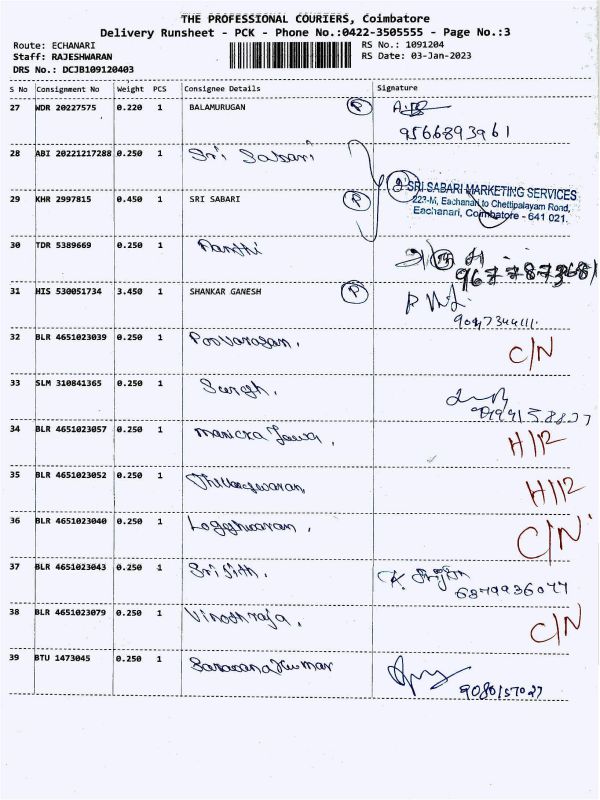 THE PROFESSIONAL COURIERS, Coimbatore
Delivery Runsheet - PCK - Phone No.:0422-3505555 - Page No.:3
Route: ECHANARI RS No.: 1091204
Staff: RAJESHWARAN RS Date: 03-Jan-2023
DRS No.: DCJB109120403
S No Consignment No Weight PCS Consignee Details Signature
27 WDR 20227575 0.220 1 BALAMURUGAN P
9566893961
28 ABI 20221217288 0.250 1 Sri Sabari
SRI SABARI MARKETING SERVICES
29 KHR 2997815 0.450 1 SRI SABARI P 223-M, Eachanari to Chettipalayam Road,
Eachanari, Coimbatore - 641 021.
30 TDR 5389669 0.250 1
31 HIS 530051734 3.450 1 SHANKAR GANESH P
32 BLR 4651023039 0.250 1 Poovarasan. C/N
33 SLM 310841365 0.250 1
34 BLR 4651023057 0.250 1 H/12
35 BLR 4651023052 0.250 1 H/12
36 BLR 4651023040 0.250 1 C/N
37 BLR 4651023043 0.250 1 Srijith.
38 BLR 4651023079 0.250 1 Vinothraja. C/N
39 BTU 1473045 0.250 1 Saravanakumar